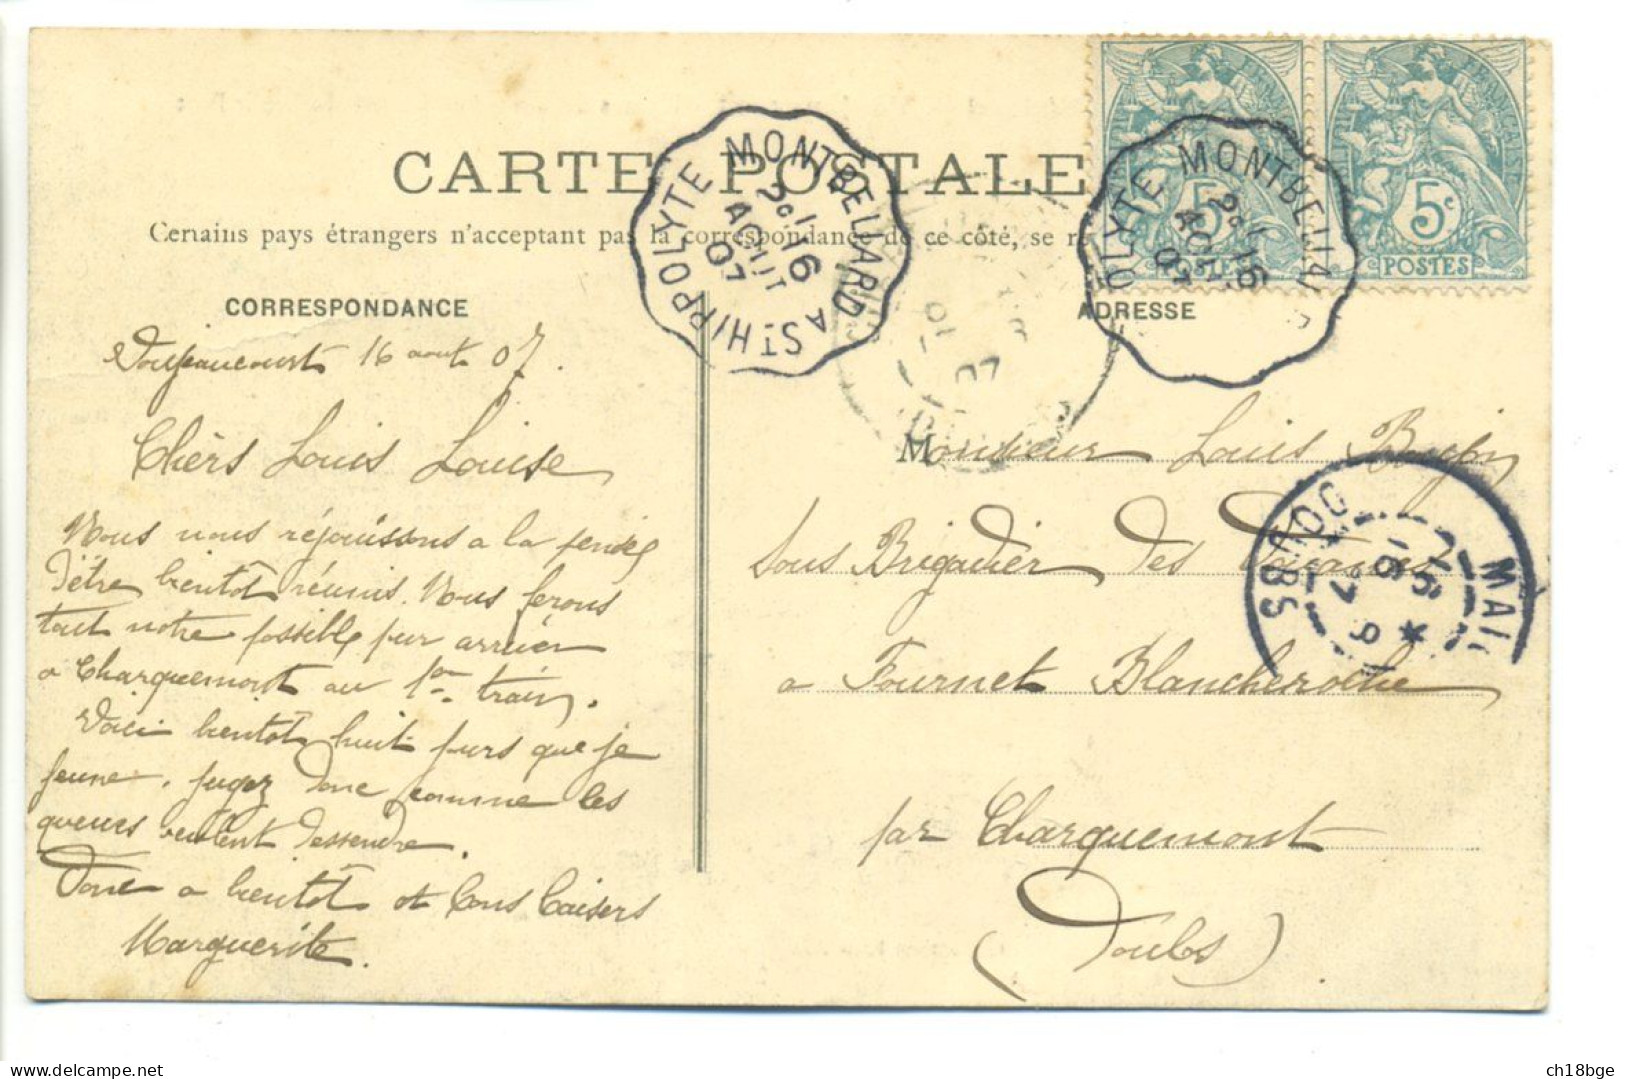 CARTE POSTALE
Certains pays étrangers n'acceptent pas la correspondance de ce côté, se r
CORRESPONDANCE
ADRESSE
MONTBELIARD A ST HIPPOLYTE
2° 16
AOUT
07
MONTBELIARD
OLYTE
2° 16
AOUT
07
FRANÇAISE
5c
POSTES
5c
POSTES
16 aout 07.
Chèrs Louis Louise
Nous nous réjouissons a la pensée
d'être bientôt réunis. Nous ferons
tout notre possible pur arriver
a Charquemont au 1er train.
Voici bientôt huit jurs que je
jeune. jugez donc comme les
queues veulent dessendre.
Donc a bientôt et bons baisers
Marguerite.
Monsieur Louis
Sous Brigadier des Douanes
a Fournet Blancheroche
par Charquemont
(Doubs)
DOUBS
MAI
ch18bge